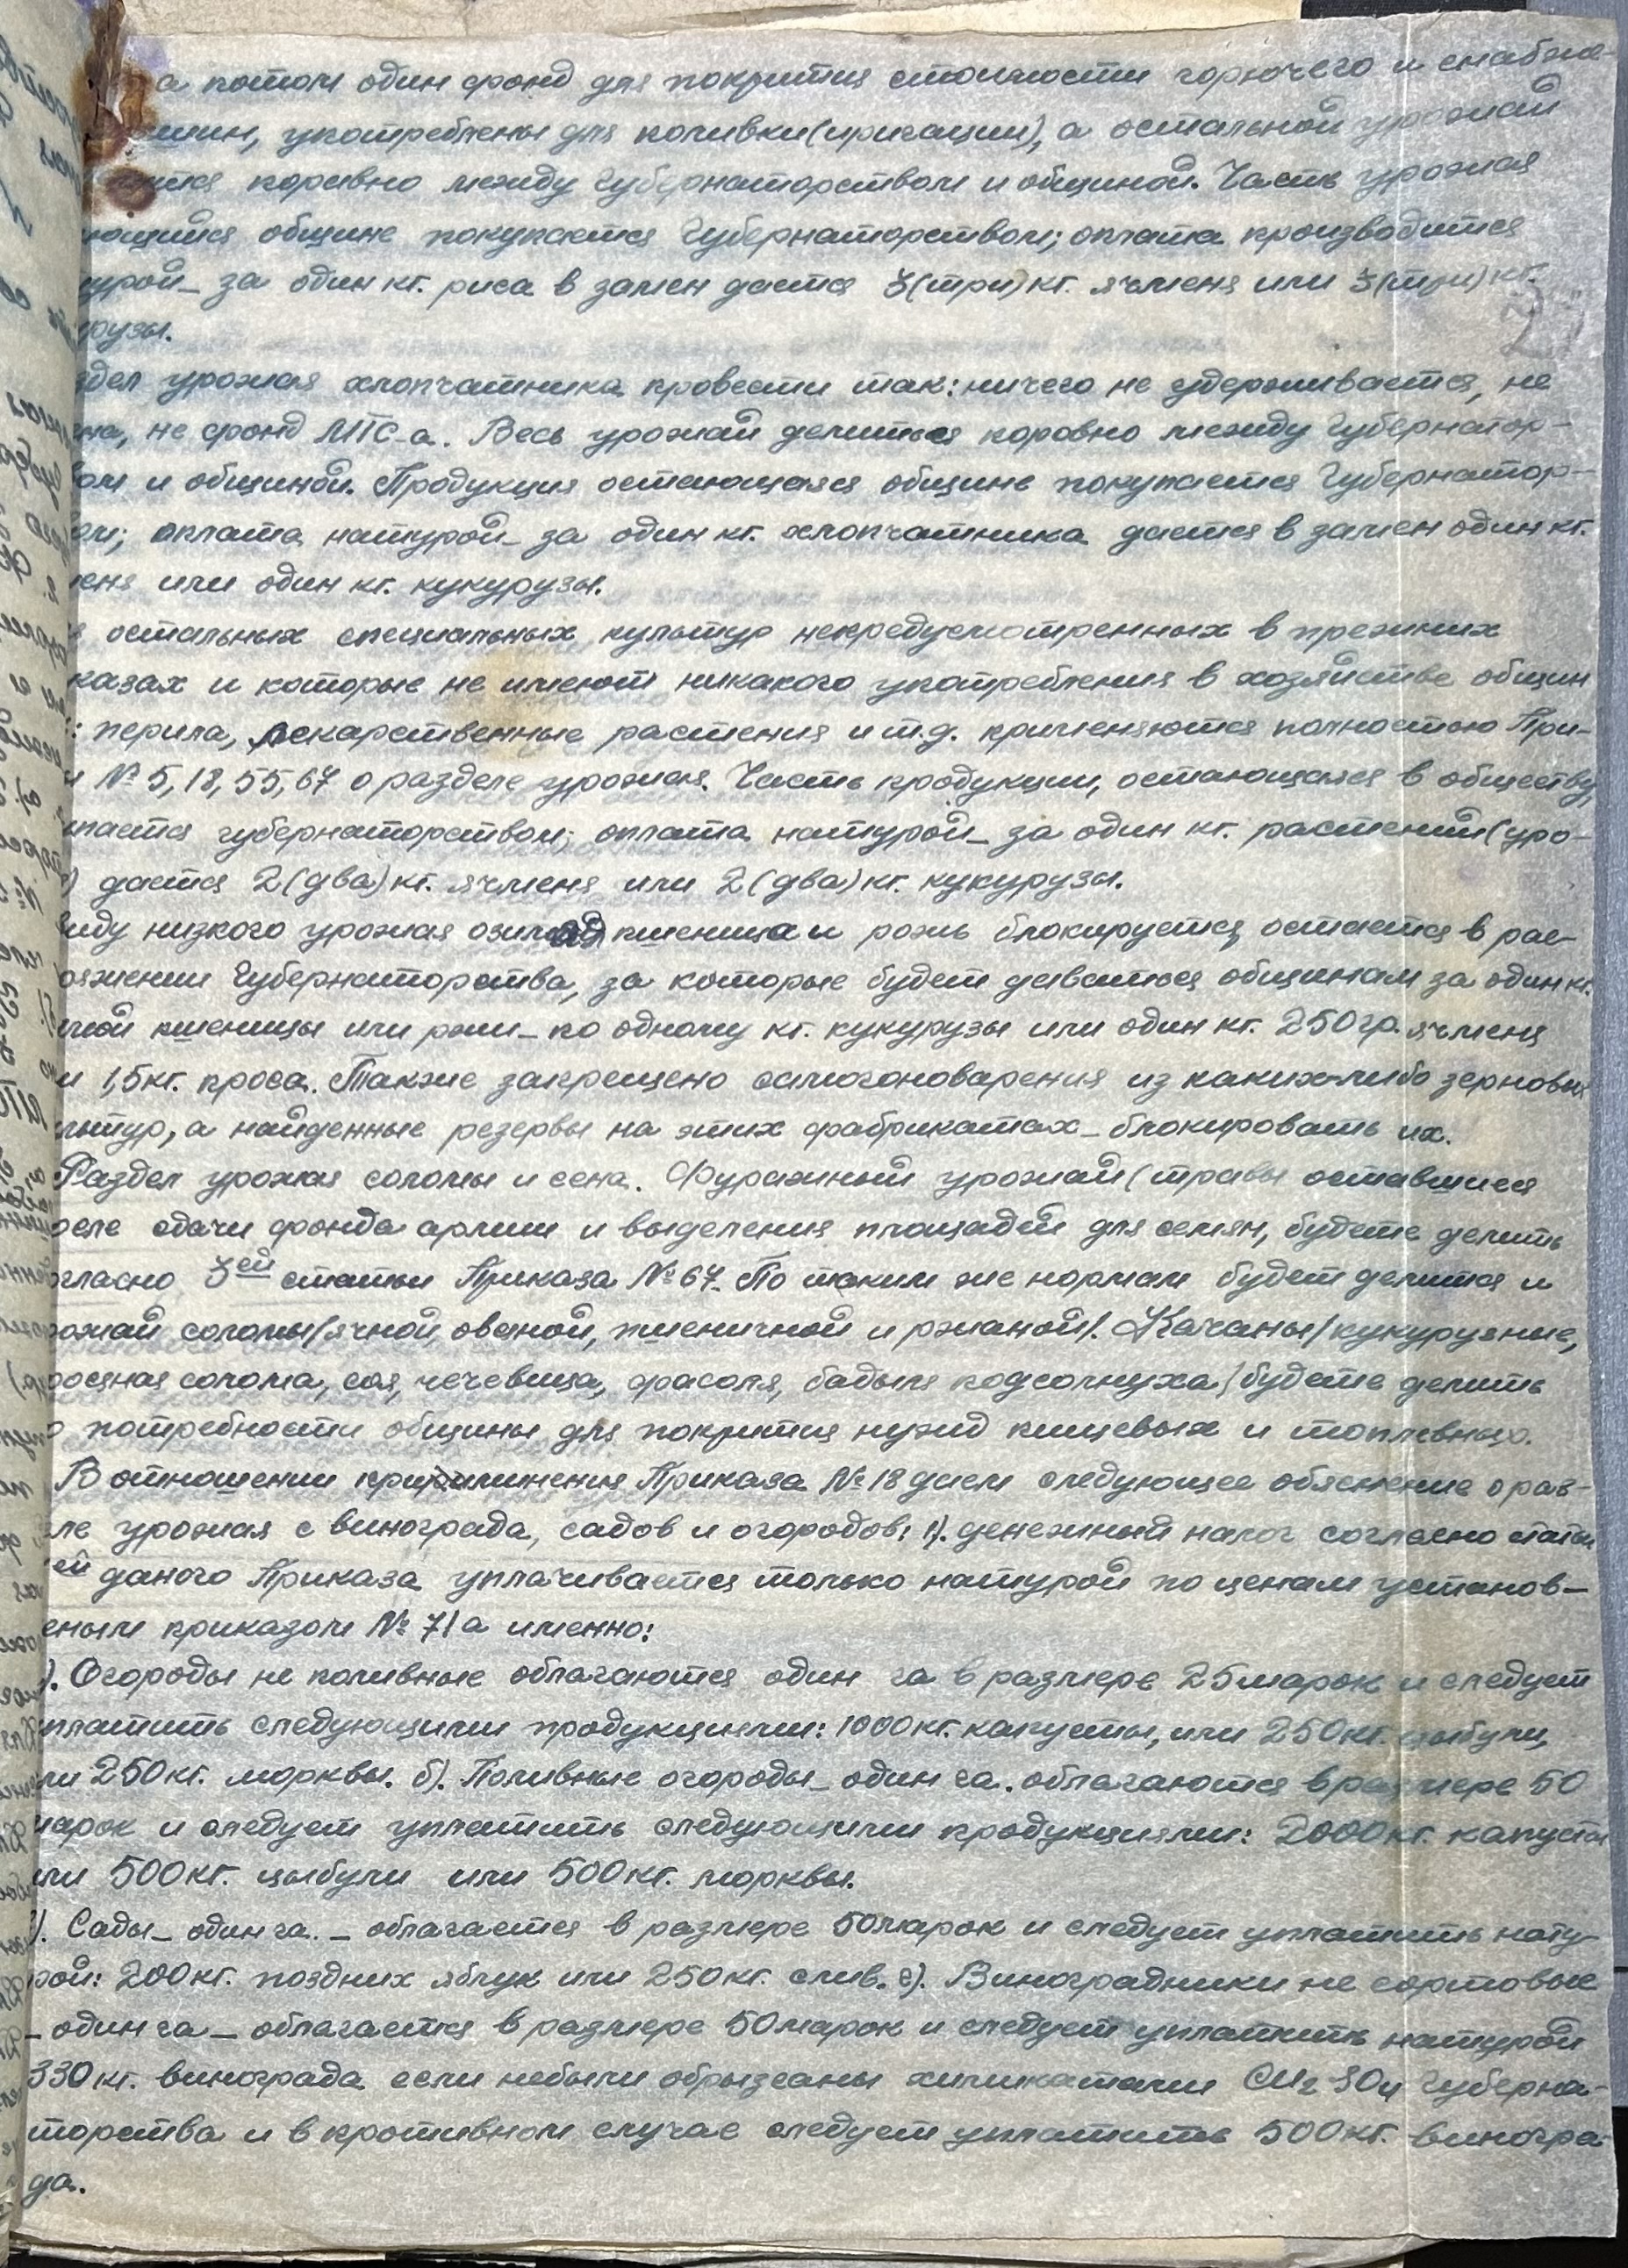 а потом один фонд для покрытия стоимости горючего и снабже-
шин, употреблены для поливки (иригации), а остальной урожай
ится поровно между Губернаторством и общиной. Часть урожая
ющийся общине покупается Губернаторством; оплата производится
урой_ за один кг. риса в замен дается 3 (три) кг. ячменя или 3 (три) кг.
рузы.
здел урожая хлопчатника провести так: ничего не удерживается, не
на, не фонд МТС-а. Весь урожай делиться поровно между Губернатор-
вом и общиной. Продукция остающаяся общине покупается Губернатор-
ом; оплата натурой_ за один кг. хлопчатника дается в замен один кг.
меня или один кг. кукурузы.
остальных специальных культур непредусмотренных в прежних
казах и которые не имеют никакого употребления в хозяйстве общин
: перила, лекарственные растения и т.д. применяются полностью При-
№ 5, 18, 55, 67 о разделе урожая. Часть продукции, остающаяся в обществу,
пается губернаторством; оплата натурой_ за один кг. растений (уро-
) дается 2 (два) кг. ячменя или 2 (два) кг. кукурузы.
виду низкого урожая озимая пшеница и рожь блокируется, остается в рас-
оряжении Губернаторства, за которые будет даваться общинам за один кг.
имой пшеницы или ржи_ по одному кг. кукурузы или один кг. 250 гр. ячменя
и 1,5 кг. проса. Также запрещено самогоноварения из каких-либо зерновых
льтур, а найденные резервы на этих фабрикатах_ блокировать их.
Раздел урожая соломы и сена. Фуражный урожай (травы оставшиеся
осле сдачи фонда армии и выделения площадей для семян, будете делить
огласно 3ей статьи Приказа № 67. По таким же нормам будет делится и
рожай соломы /ячной, овсяной, пшеничной и ржаной/. Качаны /кукурузные,
росяная солома, соя, чечевица, фасоля, бадыля подсолнуха/ будете делить
о потребности общины для покрытия нужд пищевых и топливных.
В отношении приминения Приказа № 18 даем следующее обяснение о раз-
ле урожая с винограда, садов и огородов: 1). денежный налог согласно статьи
ей даного Приказа уплачивается только натурой по ценам установ-
еным приказом № 71 а именно:
). Огороды не поливные облагаются один га в размере 25 марок и следует
платить следующими продукциями: 1000 кг. капусты, или 250 кг. цыбули,
ли 250 кг. морквы. б). Поливные огороды_ один га. облагаются в размере 50
марок и следует уплатить следующими продукциями: 2000 кг. капусты
или 500 кг. цыбули или 500 кг. морквы.
). Сады_ один га._ облагается в размере 50 марок и следует уплатить нату-
рой: 200 кг. поздних яблук или 250 кг. слив. г). Виноградники не сортовые
_ один га_ облагается в размере 50 марок и следует уплатить натурой
330 кг. винограда если небыли обрызганы химикатами Губерна-
торства и в противном случае следует уплатить 500 кг. виногра-
да.